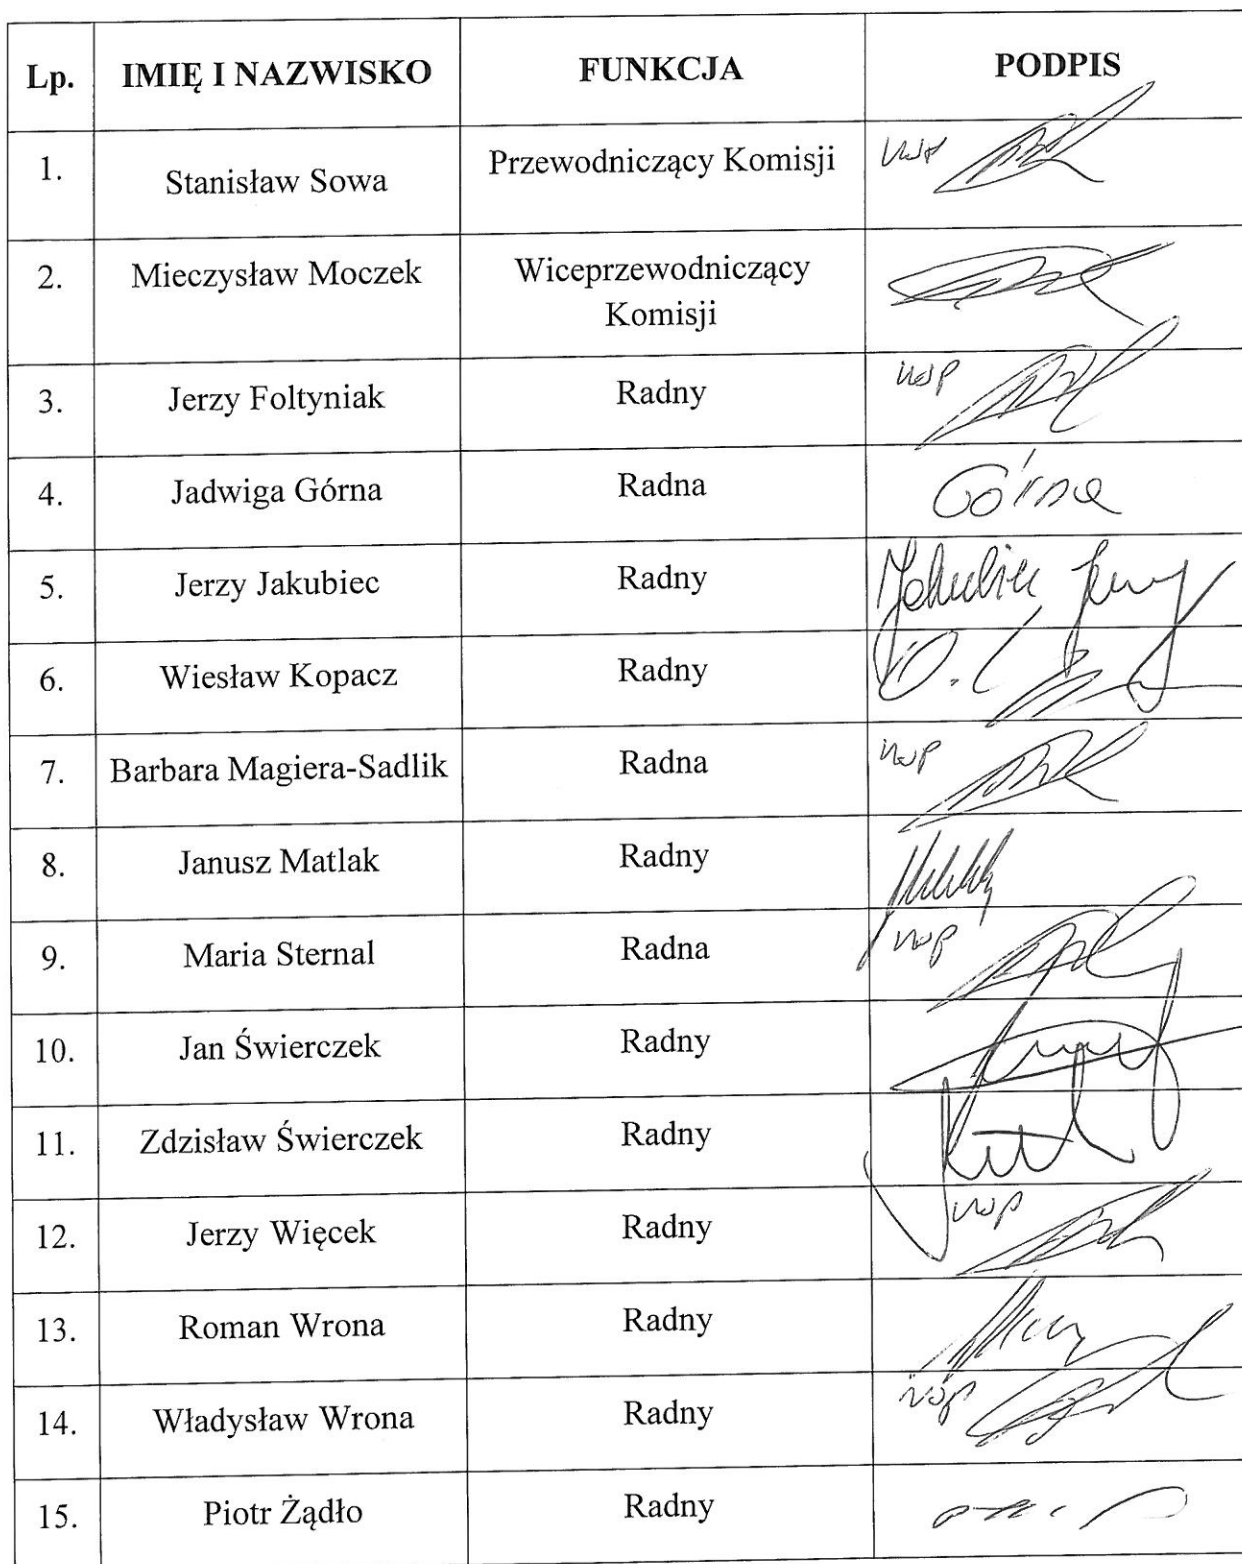 Lp. IMIĘ I NAZWISKO FUNKCJA PODPIS
1. Stanisław Sowa Przewodniczący Komisji
2. Mieczysław Moczek Wiceprzewodniczący
Komisji
3. Jerzy Foltyniak Radny
4. Jadwiga Górna Radna Górna
5. Jerzy Jakubiec Radny Jakubiec Jerzy
6. Wiesław Kopacz Radny
7. Barbara Magiera-Sadlik Radna
8. Janusz Matlak Radny
9. Maria Sternal Radna
10. Jan Świerczek Radny
11. Zdzisław Świerczek Radny
12. Jerzy Więcek Radny
13. Roman Wrona Radny
14. Władysław Wrona Radny
15. Piotr Żądło Radny